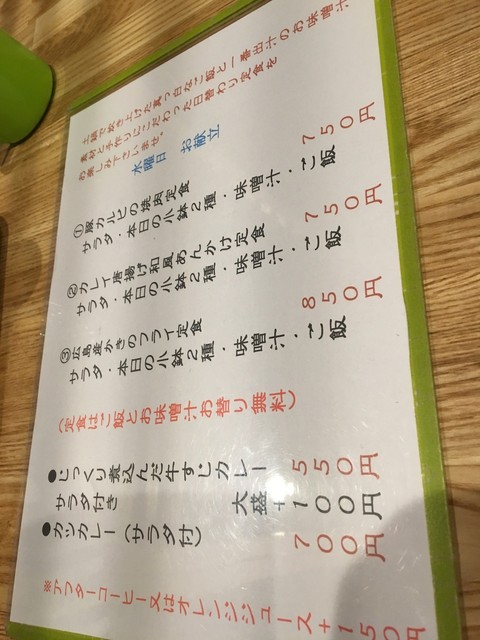 土鍋で炊き上げた真っ白なご飯と一番出汁のお味噌汁
素材と手作りにこだわった日替わり定食を
お楽しみ下さいませ。
水曜日　お献立
①豚カルビの焼肉定食　７５０円
サラダ・本日の小鉢２種・味噌汁・ご飯
②カレイ唐揚げ和風あんかけ定食　７５０円
サラダ・本日の小鉢２種・味噌汁・ご飯
③広島産かきのフライ定食　８５０円
サラダ・本日の小鉢２種・味噌汁・ご飯
（定食はご飯とお味噌汁お替り無料）
●じっくり煮込んだ牛すじカレー　５５０円
サラダ付き　大盛＋１００円
●カツカレー（サラダ付）　７００円
※アフターコーヒー又はオレンジジュース＋１５０円